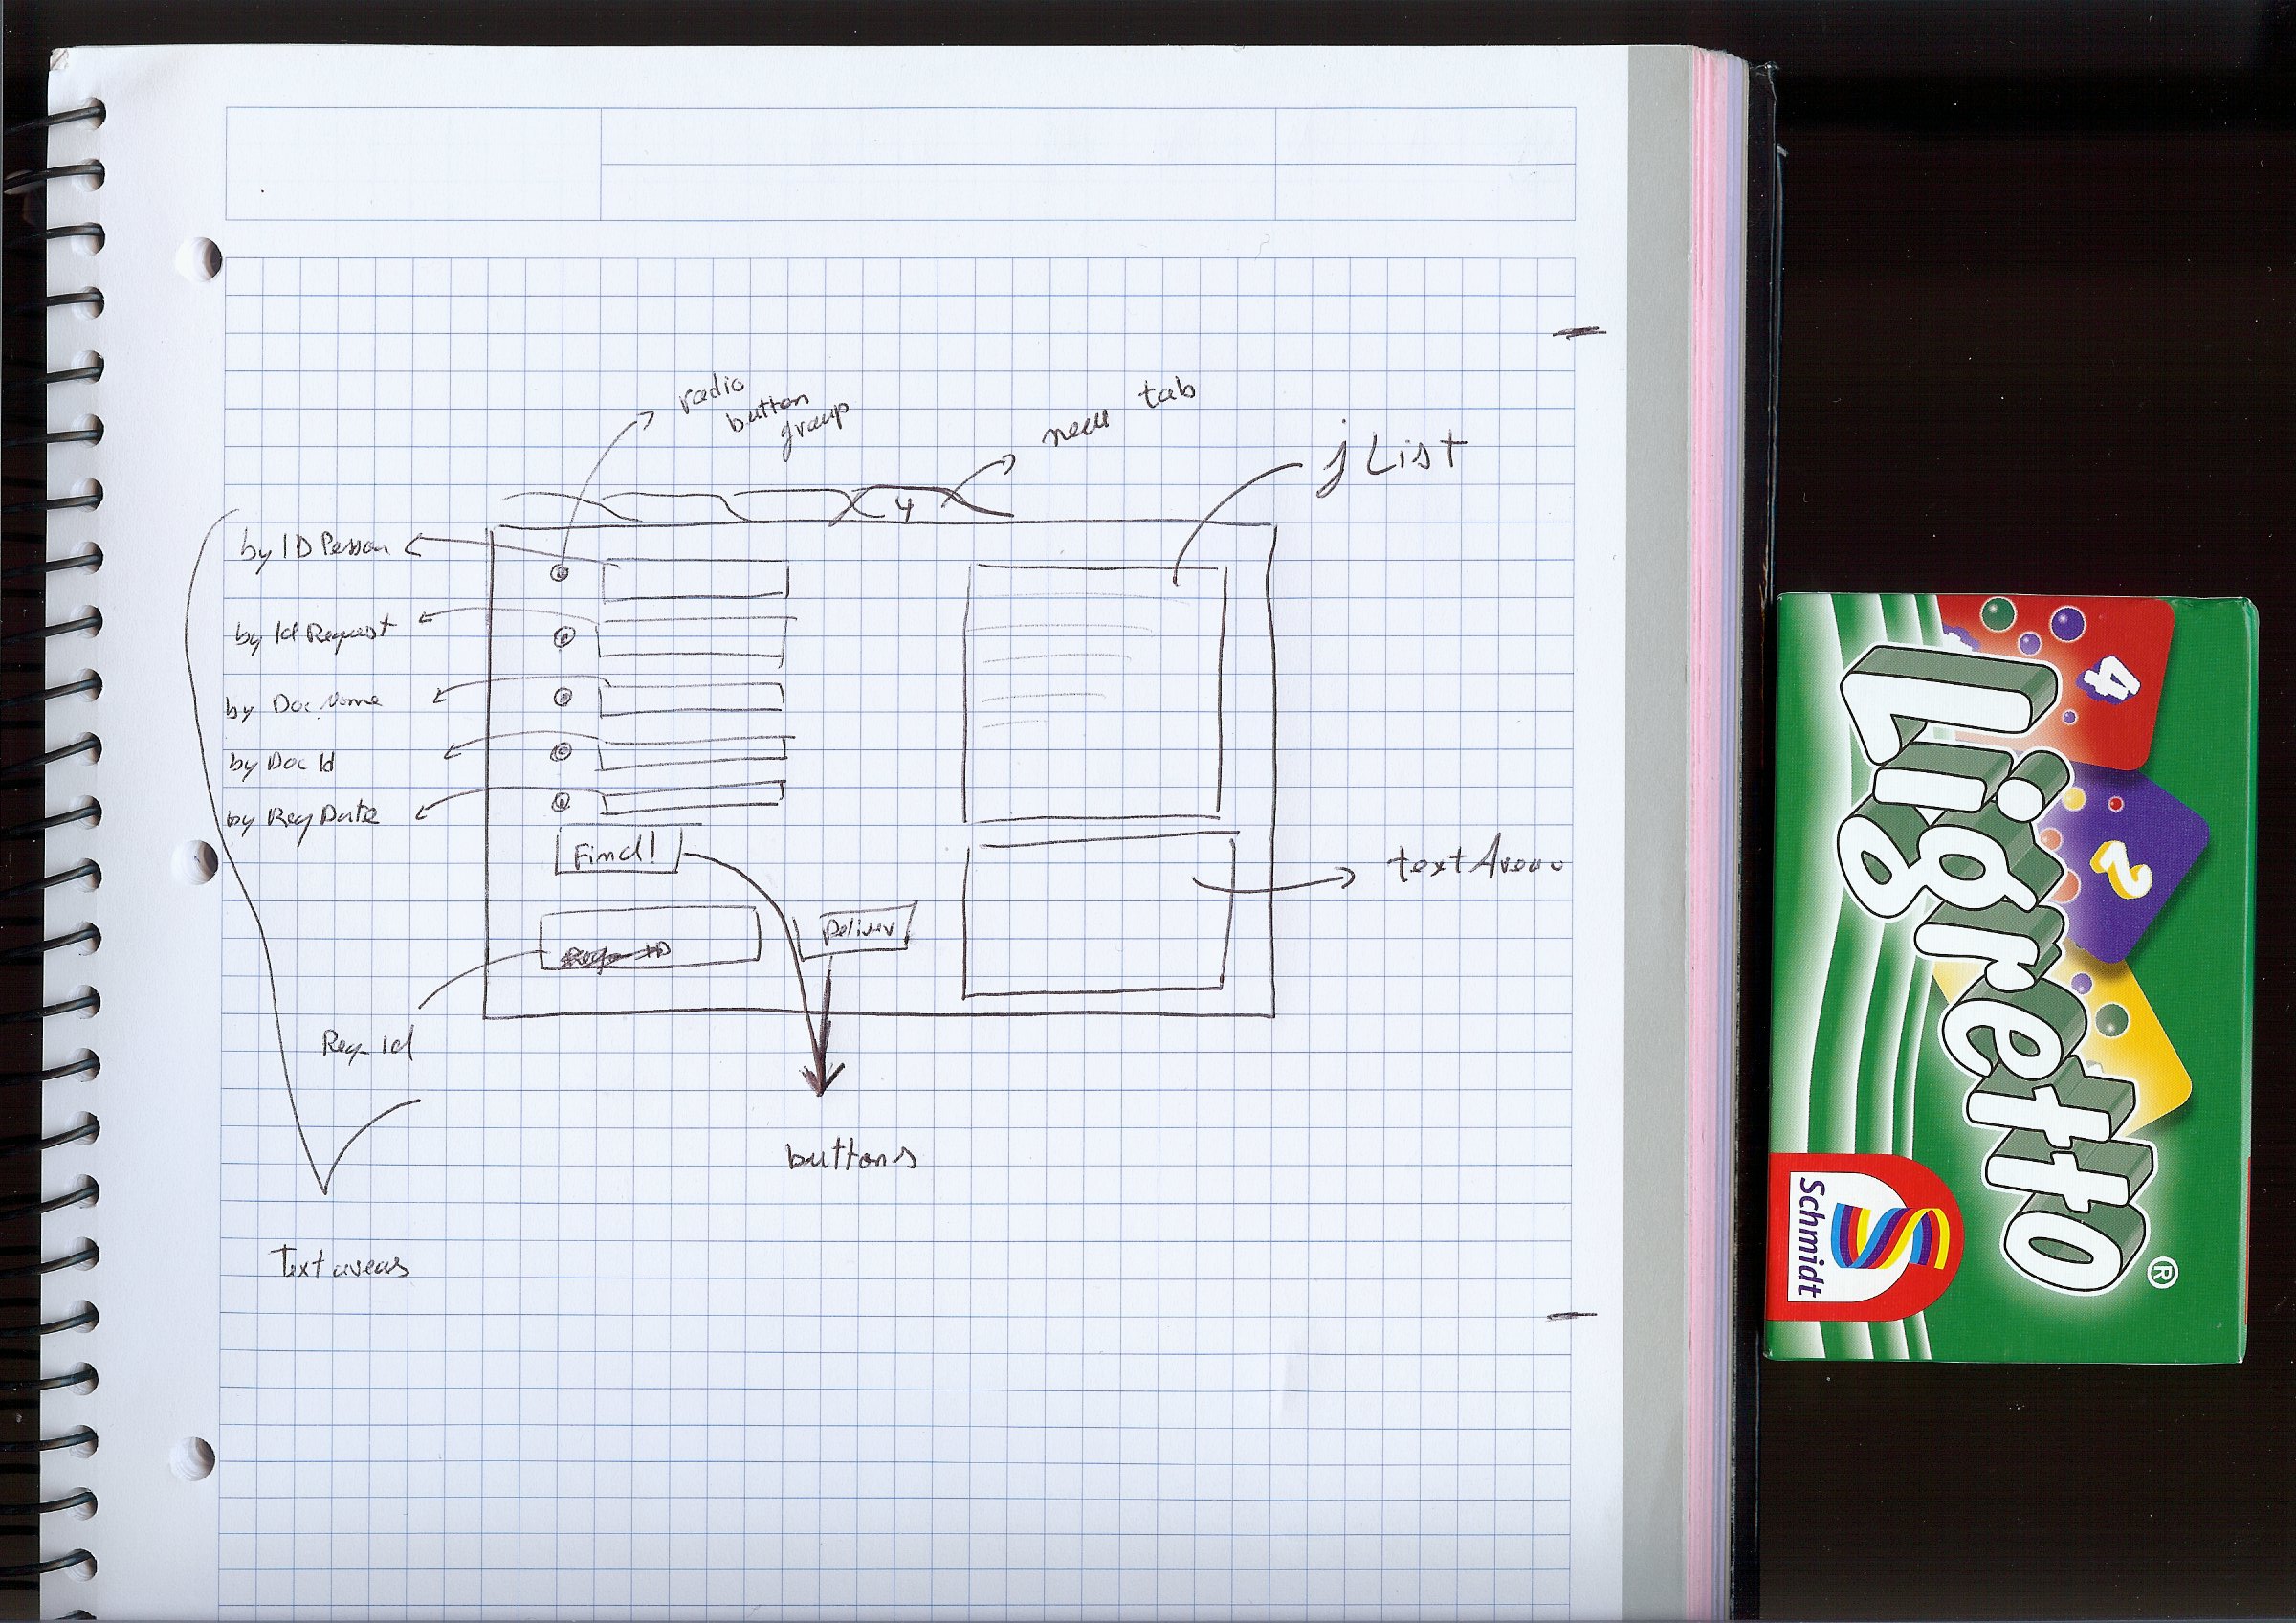 radio
button
group
new tab
jList
4
by ID Person
by Id Request
by Doc Name
by Doc Id
by Req Date
Find!
Deliver
textArea
Req Id
buttons
Text areas
4
2
Ligretto®
Schmidt